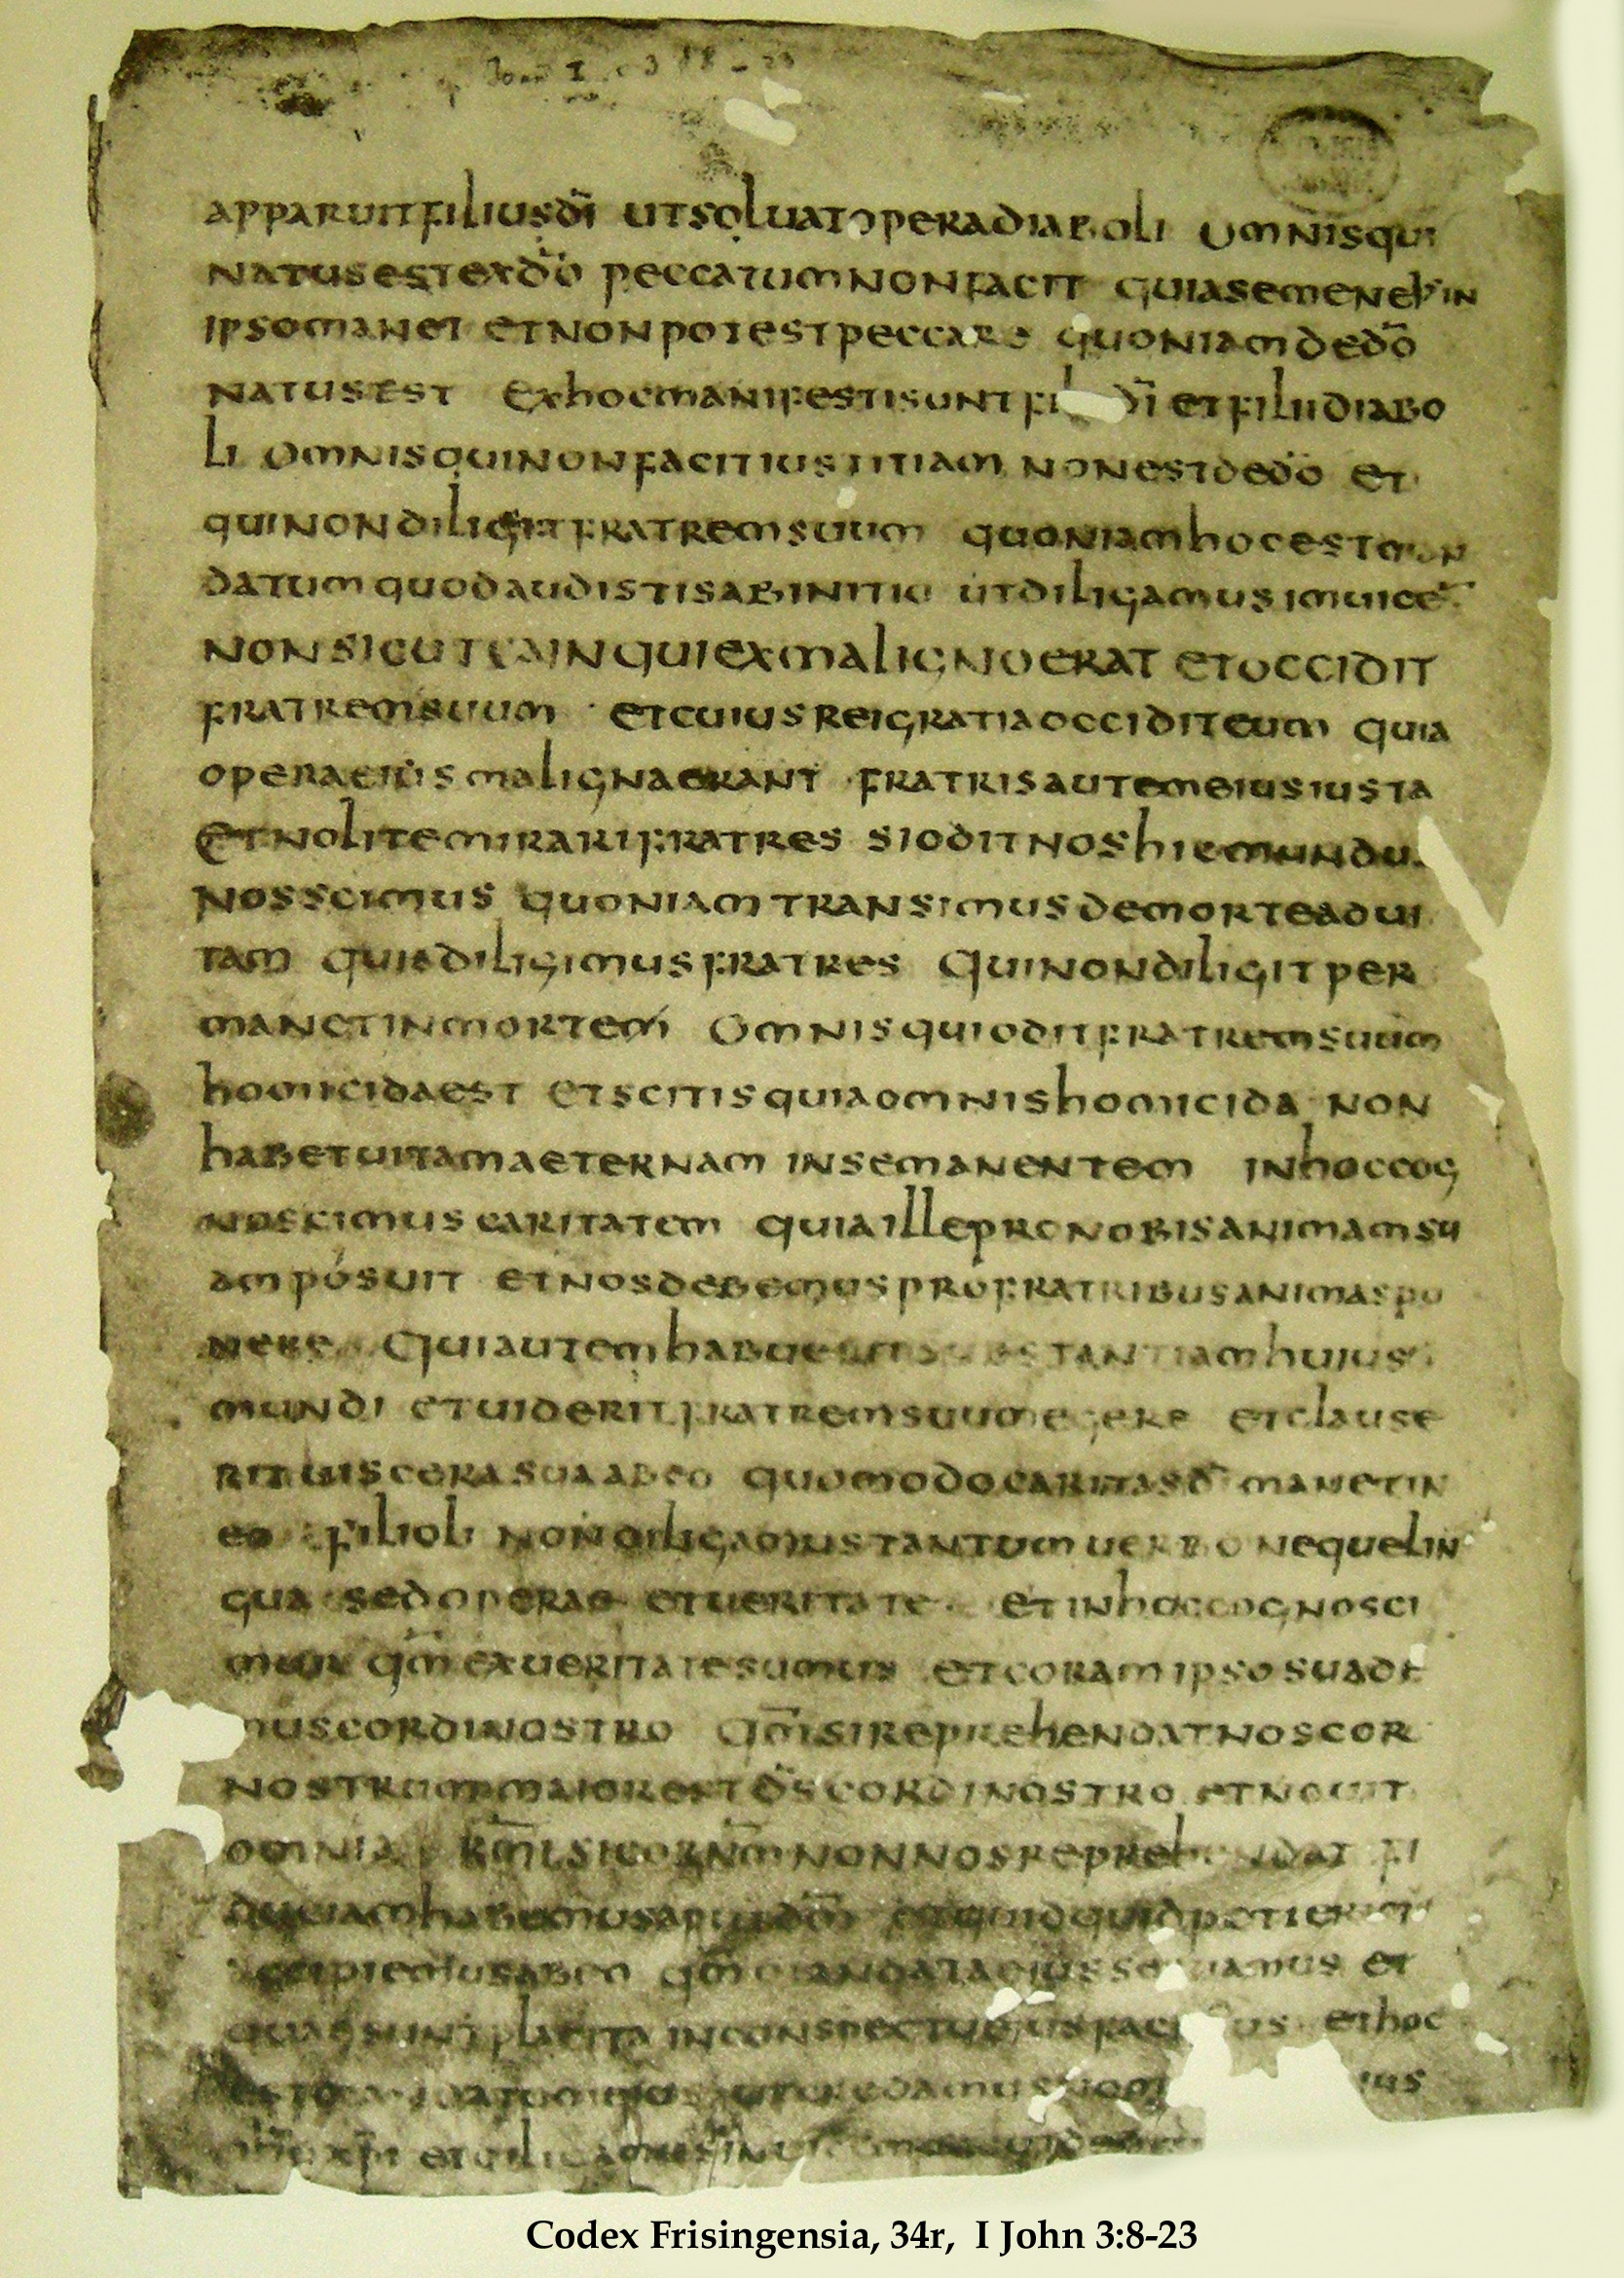 apparuitfiliusdī utsoluatoperadiaboli omnisqui
natusestexdō peccatumnonfacit quiasemeneius in
ipsomanet etnonpotestpeccare quoniamdedō
natusest exhocmanifestisuntfi dī etfiliidiabo
li omnisquinonfacitiustitiam nonestdedō et
quinondiligitfratremsuum quoniamhocest
datumquodaudistisabinitio utdiligamusinuice
nonsicutcainquiexmalignoerat etoccidit
fratremsuum etcuiusreigratiaocciditeum quia
operaeius malignaerant fratrisautemeiusiusta
etnolitemirarifratres sioditnoshicmundu
nosscimus quoniamtransimusdemorteadui
tam quiadiligimusfratres quinondiligitper
manetinmortem omnisquioditfratremsuum
homicidaest etscitisquiaomnishomicida non
habetuitamaeternam insemanentem inhoccog
noscimuscaritatem quiaillepronobisanimamsu
amposuit etnosdebemusprofratribusanimaspo
nere quiautemhabueritsubstantiamhuius
mundi etuideritfratremsuumegere etclause
rituiscerasuaabeo quomodocaritasdī manetin
eo filioli nondiligamustantumuerbo nequelin
gua sedoperae etueritate etinhoccognosci
mur qm̄exueritatesumus etcoramipsosuade
muscordinostro qm̄sireprehendatnoscor
nostrummaiorestds̄cordinostro etnouit
omnia km̄isicornm̄nonnosreprehendat fi
duciamhabemusapuddm̄ etquidquidpetierim
accipiemusabeo qm̄mandataeiusseruamus et
quaesuntplacitainconspectueius et hoc
estmandatumeius utcredamus ius
xpi etdiligamusinuicem
Joan I c 3 88 - 23
Codex Frisingensia, 34r, I John 3:8-23